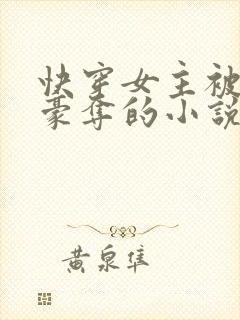 快穿女主被
豪夺的小説
黄泉隼